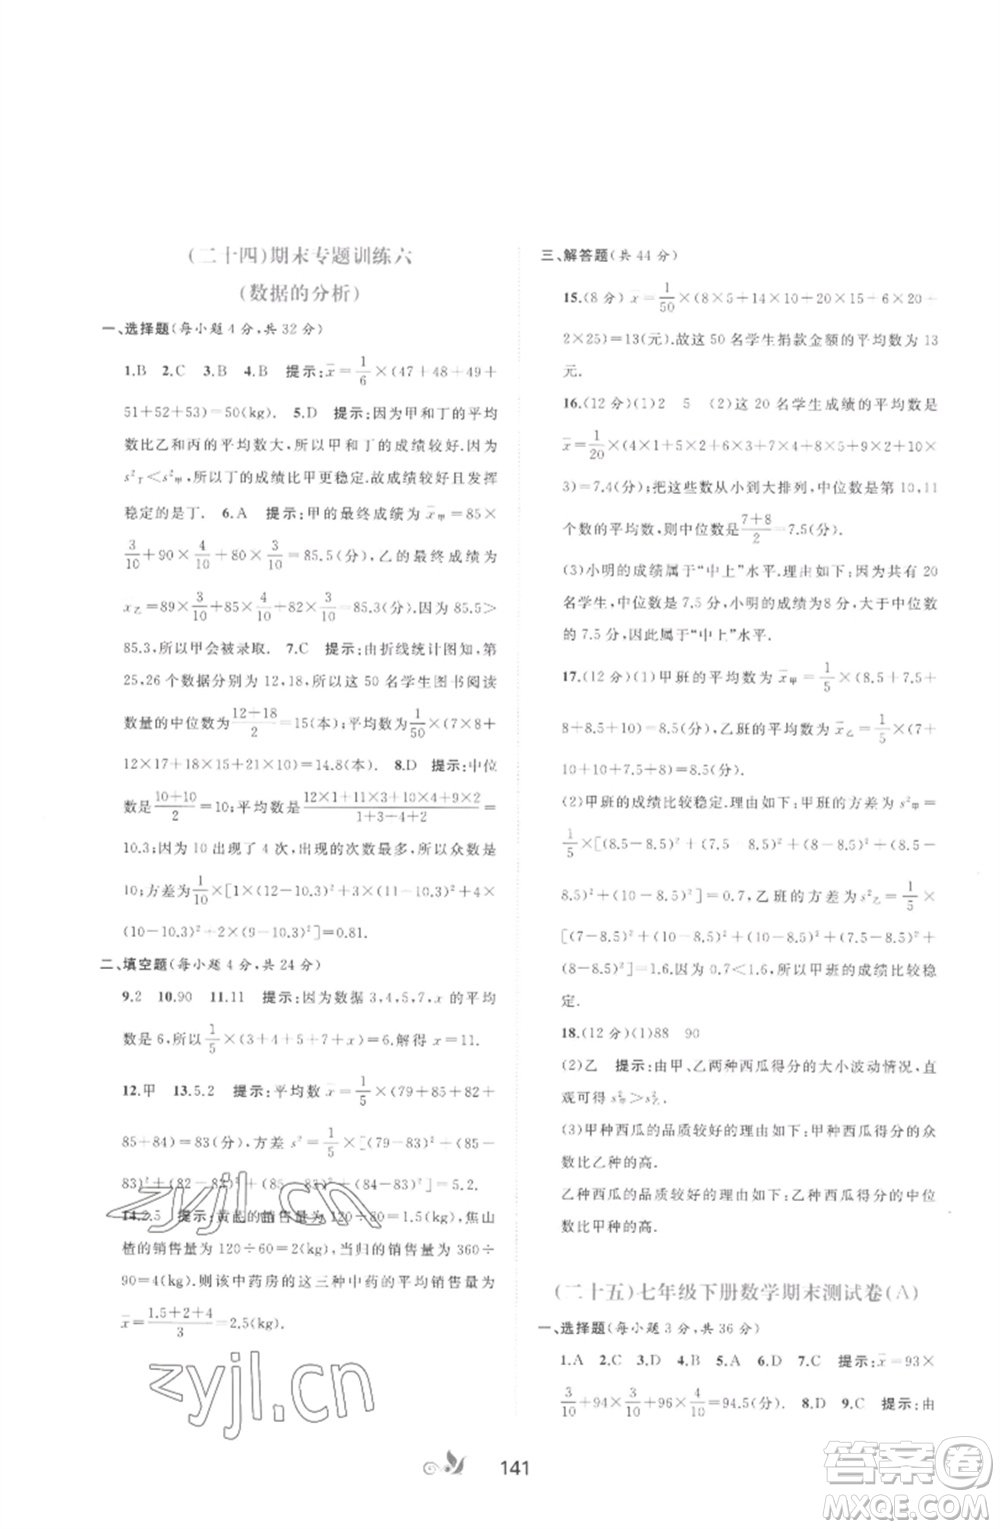 (二十四)期末专题训练六
(数据的分析)
一、选择题(每小题 4 分,共 32 分)
1.B 2.C 3.B 4.B 提示:x̄=1/6×(47+48+49+
51+52+53)=50(kg). 5.D 提示:因为甲和丁的平均
数比乙和丙的平均数大,所以甲和丁的成绩较好.因为
s²丁<s²甲,所以丁的成绩比甲更稳定.故成绩较好且发挥
稳定的是丁. 6.A 提示:甲的最终成绩为 x̄甲=80×
3/10+90×4/10+80×3/10=85.5(分),乙的最终成绩为
x乙=89×3/10+84×4/10+82×3/10=85.3(分).因为 85.5>
85.3,所以甲会被录取. 7.C 提示:由折线统计图知,第
25,26 个数据分别为 12,18,所以这 50 名学生图书阅读
数量的中位数为(12+18)/2=15(本);平均数为1/50×(7×8+
12×17+15×18+21×7)=14.8(本). 8.D 提示:中位
数是(10+10)/2=10;平均数是(12×1+11×3+10×4+9×2)/(1+3+4+2)=
10.3;因为 10 出现了 4 次,出现的次数最多,所以众数是
10;方差为1/10×[1×(12-10.3)²+3×(11-10.3)²+4×
(10-10.3)²+2×(9-10.3)²]=0.81.
二、填空题(每小题 4 分,共 24 分)
9.2 10.90 11.11 提示:因为数据 3,4,5,7,x 的平均
数是 6,所以1/5×(3+4+5+7+x)=6.解得 x=11.
12.甲 13.5.2 提示:平均数 x̄=1/5×(79+85+82+
85+84)=83(分),方差 s²=1/5×[(79-83)²+(85-
83)²+(82-83)²+(85-83)²+(84-83)²]=5.2.
14.2.5 提示:黄芪的销售量为 120÷80=1.5(kg),焦山
楂的销售量为 120÷60=2(kg),当归的销售量为 360÷
90=4(kg).则该中药房的这三种中药的平均销售量为
x̄=(1.5+2+4)/3=2.5(kg).
三、解答题(共 44 分)
15.(8分) x̄=1/50×(5×8+10×20+15×14+20×6+
2×25)=13(元).故这 50 名学生捐款金额的平均数为 13
元.
16.(12分)(1)2 5 (2)这 20 名学生成绩的平均数是
3)=7.4(分);把这些数从小到大排列,中位数是第 10,11
个数的平均数,则中位数是(7+8)/2=7.5(分).
(3)小明的成绩属于“中上”水平.理由如下:因为共有 20
名学生,中位数是 7.5 分,小明的成绩为8分,大于中位数
的 7.5 分,因此属于“中上”水平.
17.(12分)(1)甲班的平均数为 x̄甲=1/5×(8.5+7.5+
8+8.5+10)=8.5(分),乙班的平均数为 x̄乙=1/5×(7+
10+10+7.5+8)=8.5(分).
(2)甲班的成绩比较稳定.理由如下:甲班的方差为 s²甲=
1/5×[(8.5-8.5)²+(7.5-8.5)²+(8-8.5)²+(8.5-
8.5)²+(10-8.5)²]=0.7,乙班的方差为 s²乙=1/5×
[(7-8.5)²+(10-8.5)²+(10-8.5)²+(7.5-8.5)²+
(8-8.5)²]=1.6.因为 0.7<1.6,所以甲班的成绩比较稳
定.
18.(12分)(1)88 90
(2)乙 提示:由甲、乙两种西瓜得分的大小波动情况,直
观可得 s²甲>s²乙.
(3)甲种西瓜的品质较好的理由如下:甲种西瓜得分的众
数比乙种的高.
乙种西瓜的品质较好的理由如下:乙种西瓜得分的中位
数比甲种的高.
(二十五)七年级下册数学期末测试卷(A)
一、选择题(每小题 3 分,共 36 分)
1.A 2.C 3.D 4.C 5.A 6.D 7.C 提示:x̄=93×
3/10+94×3/10+96×4/10=94.5(分). 8.D 9.C 提示:由
141
zyjl.cn
zyjl.cn
答案圈
MXQE.COM